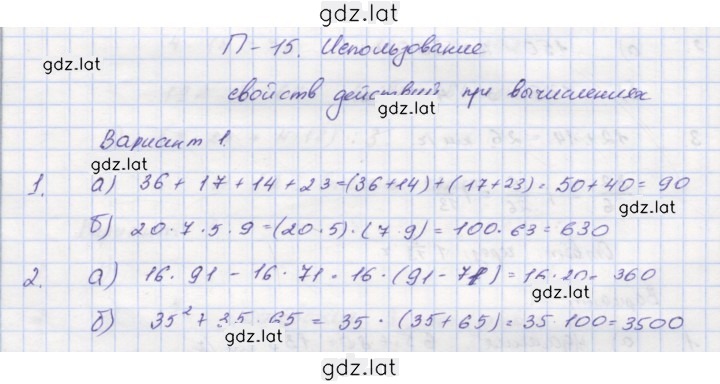 gdz.lat
П-15. Использование
gdz.lat
свойств действий при вычислениях
gdz.lat
Вариант 1.
gdz.lat
1. а) 36 + 17 + 14 + 23 = (36+14) + (17+23) = 50 + 40 = 90
gdz.lat
б) 20 · 7 · 5 · 9 = (20 · 5) · (7 · 9) = 100 · 63 = 630
2. а) 16 · 91 - 16 · 71 = 16 · (91 - 71) = 16 · 20 = 360
gdz.lat
б) 35² + 35 · 65 = 35 · (35 + 65) = 35 · 100 = 3500
gdz.lat
gdz.lat